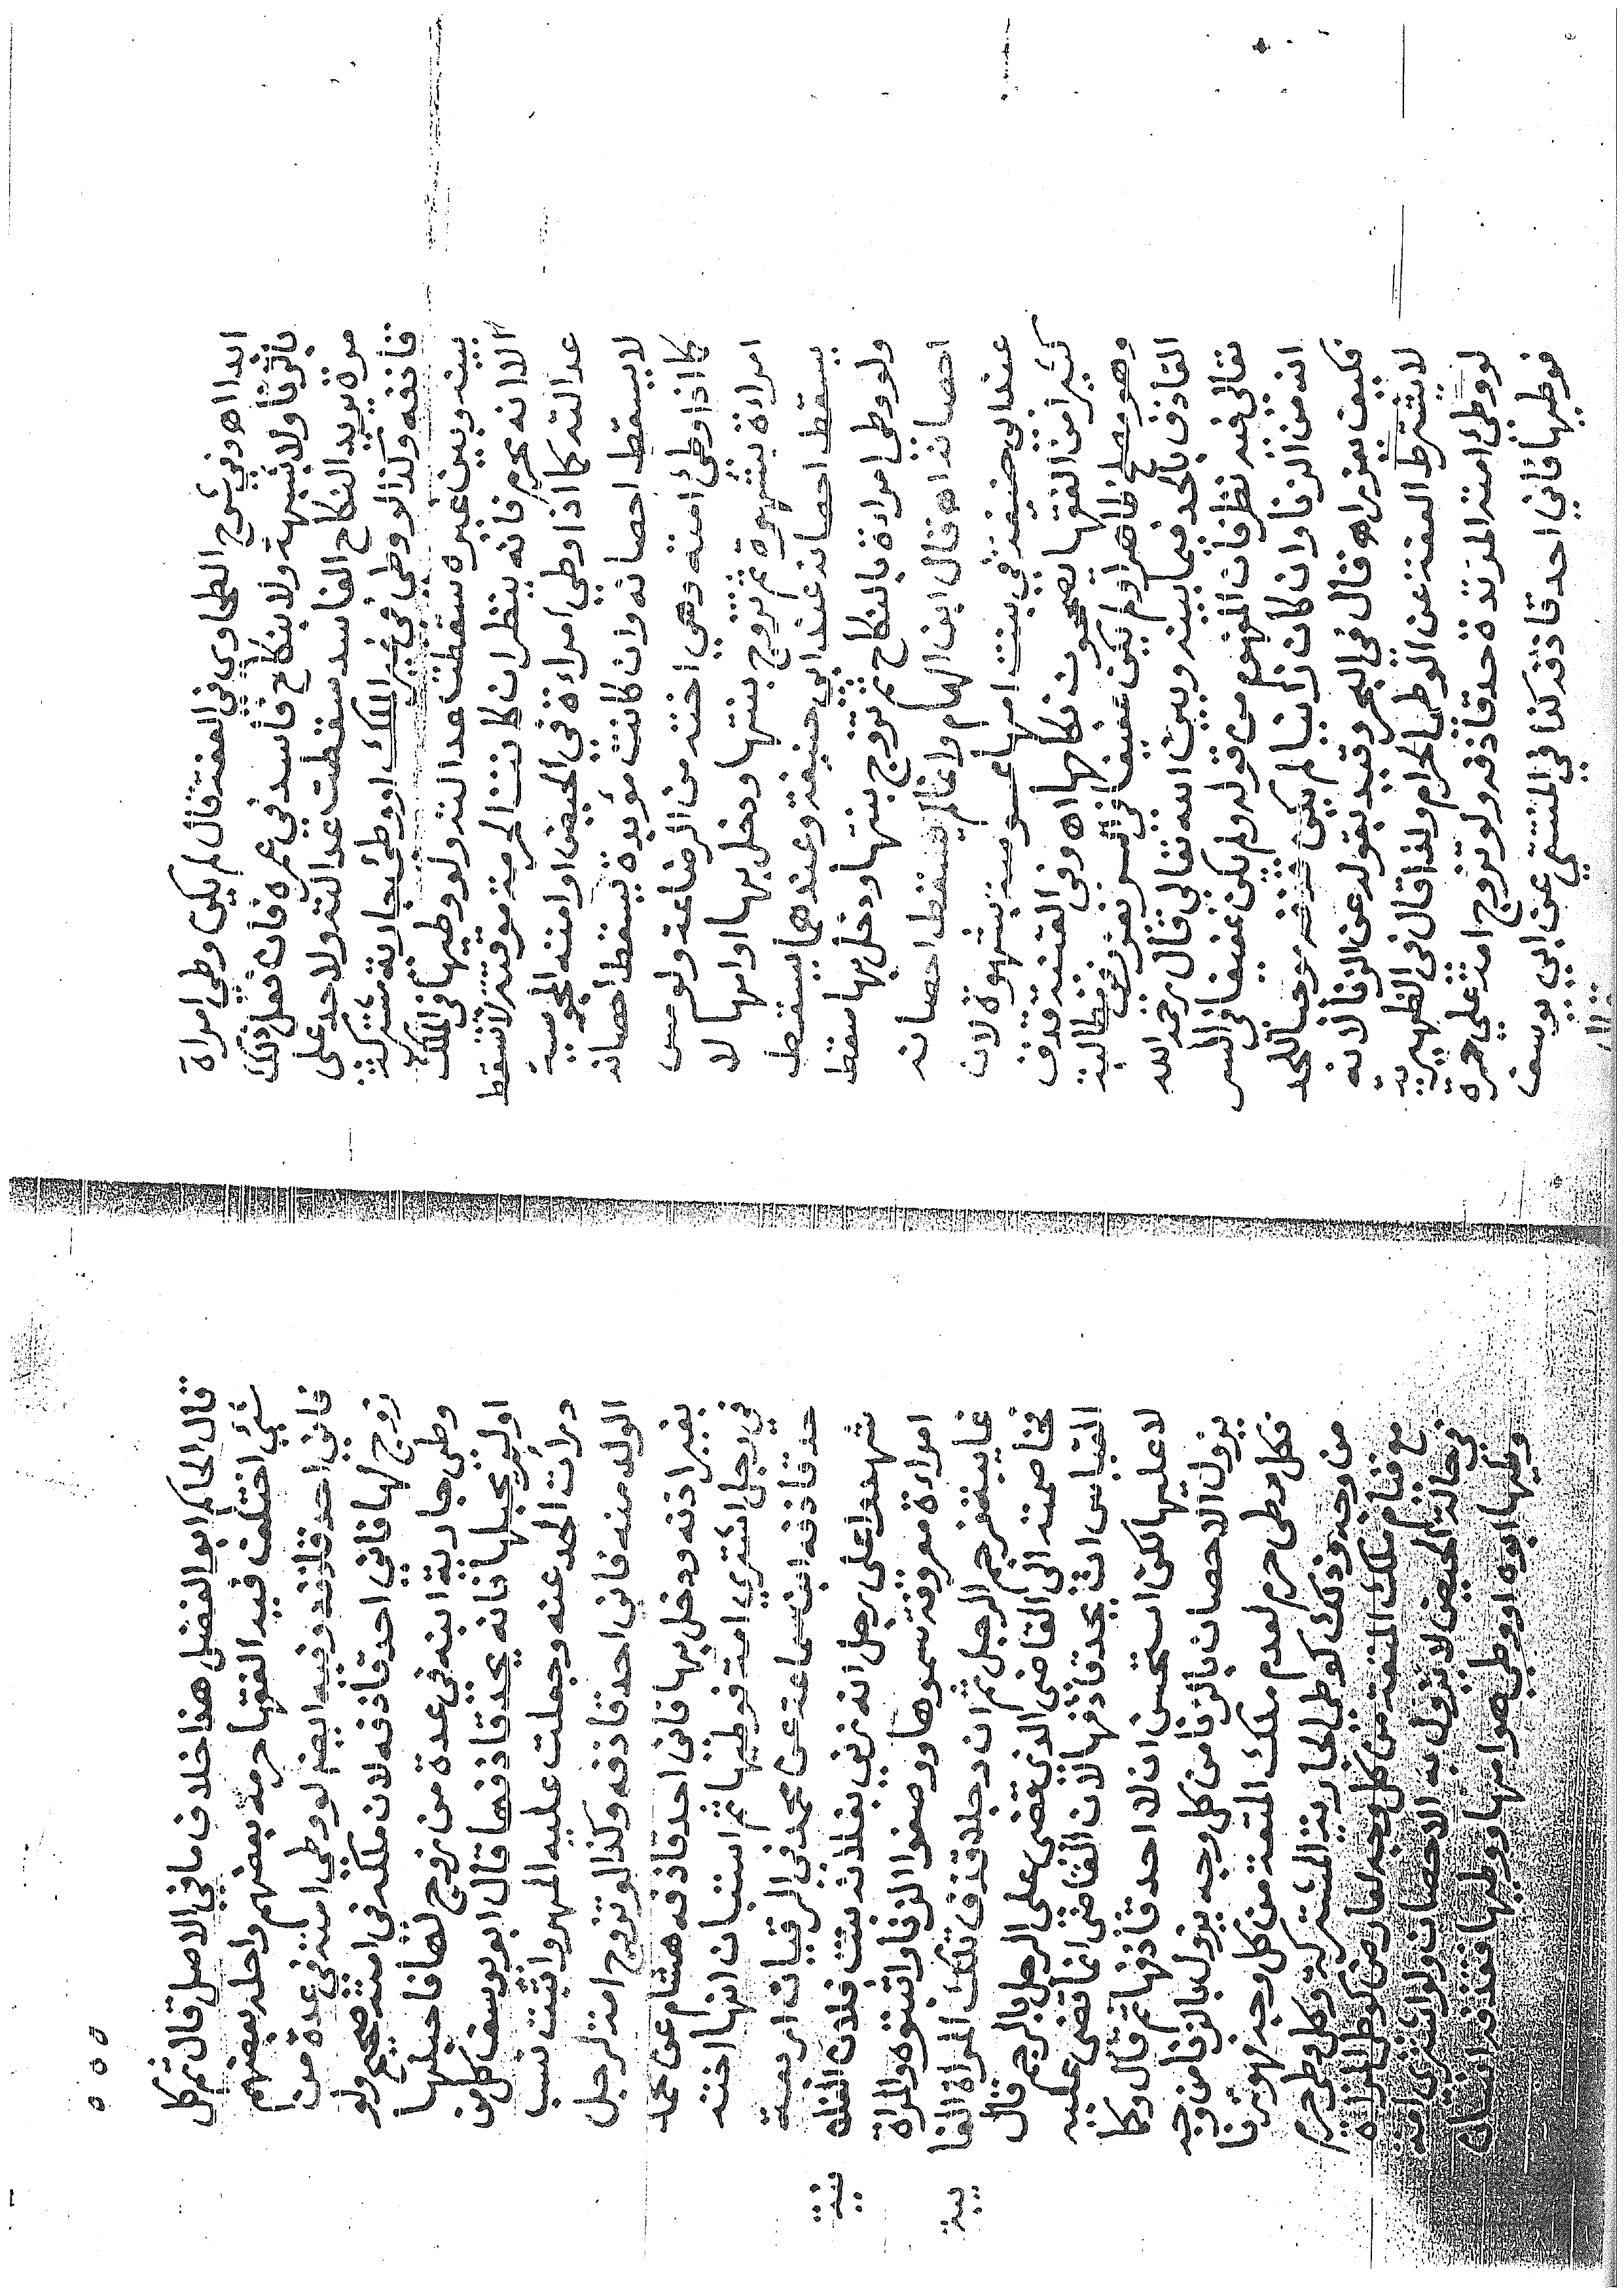 ابدا اه وفي شرح الطحاوي في العفة قال لم يكن وطي امراة
بالزنا ولا بشبهة ولا بنكاح فاسد في عمره فان فعل ذلك
مرة يريد النكاح الفاسد سقطت عدالته ولا حد على
قاذفه وكذا لو وطئ في غير الملك او وطئ بجارية مشتركة
بينه وبين غيره سقطت عدالته ولو وطيها في الملك
الا انه محرم فانه ينظر ان كانت الحرمة موقتة لا تسقط
عدالته كما اذا وطي امراءة في الحيض او امته المجوسية
لا يسقط احصانه وان كانت مؤبدة يسقط احصانه
كما اذا وطئ امته وهي اخته من الرضاعة ولو مس
امراءة بشهوة ثم تزوج بنتها ودخل بها او امها لا
يسقط احصانه عند ابي حنيفة وعندهما يسقط
ولو وطى امراءة بالنكاح ثم تزوج بنتها ودخل بها سقط
احصانه اه قال ابن الهمام وانما لم يسقط احصانه
عند ابي حنيفة في بنت امها ممسوسة بشهوة لان
كثيرا من الفقها يصححون نكاحها اه وفي القنية قذف
وهو مصلح ظاهرا ولم يكن عفيفا في السر تعذر مطالبة
القاذف بالحد فيما بينه وبين الله تعالى قال رحمه الله
تعالى فيه نظر فان المفهوم من قوله ولم يكن عفيفا في السر
انه من الزنا وان كان زانيا لم يكن قذفه موجبا للحد
فكيف تعزيره اه قال في البحر وقيد بقوله عن الزنا لانه
لا تشترط العفة عن الوطى الحرام ولذا قال في الظهيرية
لو وطئ امته المرتدة حد قاذفه ولو تزوج امة على حرة
فوطيها فاني احد قاذفه كذا في المنتقى عن ابي يوسف
قال
قال الحاكم ابو الفضل هذا خلاف ما في الاصل قال ثم كل
شيئ اختلف فيه الفقها حرمه بعضهم واحله بعضهم
فاني احد قاذفه وفيه ايضا لو وطي امته في عدة من
زوج لها فاني احد قاذفه لان ملكه في امته صحيح ولو
وطي جارية ابنه في عدة من زوج لها فاحبلها
او لم يحبلها فانه يحد قاذفهما قال ابو يوسف كل من
درأت الحد عنه وجعلت عليه المهر واثبت نسب
الولد منه فاني احد قاذفه وكذا لو تزوج امة لرجل
بغير اذنه ودخل بها فاني احد قاذفه هشام عن محمد
في رجل اشترى امة فوطيها ثم استبان انها اخته
حد قاذفه ابن سماعة عن محمد في الرقيات اربعة
شهدوا على رجل انه زنى بفلانة بنت فلان الفلانية
امراءة معروفة سموها ووصفوا الزنا واثبتوه والمراة
غايبة فرجم الرجل ثم ان رجلا قذف تلك المراة الغايبة
فخاصمته الى القاضى الذى قضى على الرجل بالرجم قال
القياس ان يحد قاذفها لان القاضى انما قضى عليه
لا عليها لكن استحسن ان لا احد قاذفها ثم قال وكما
يزول الاحصان بالزنا من كل وجه يزول بالزنا من وجه
فكل وطى حرم لعدم ملك المتعة من كل وجه فهو زنا
من وجه وذلك كوطى الجارية المشتركة وكل وطى حرم
مع قيام ملك المتعة من كل وجه لعارض كوطى المراة
في حالة الحيض لا يزول به الاحصان ولو اشترى امة
وطيها ابوه او وطي هو امها ووطيها فقذفه انسان